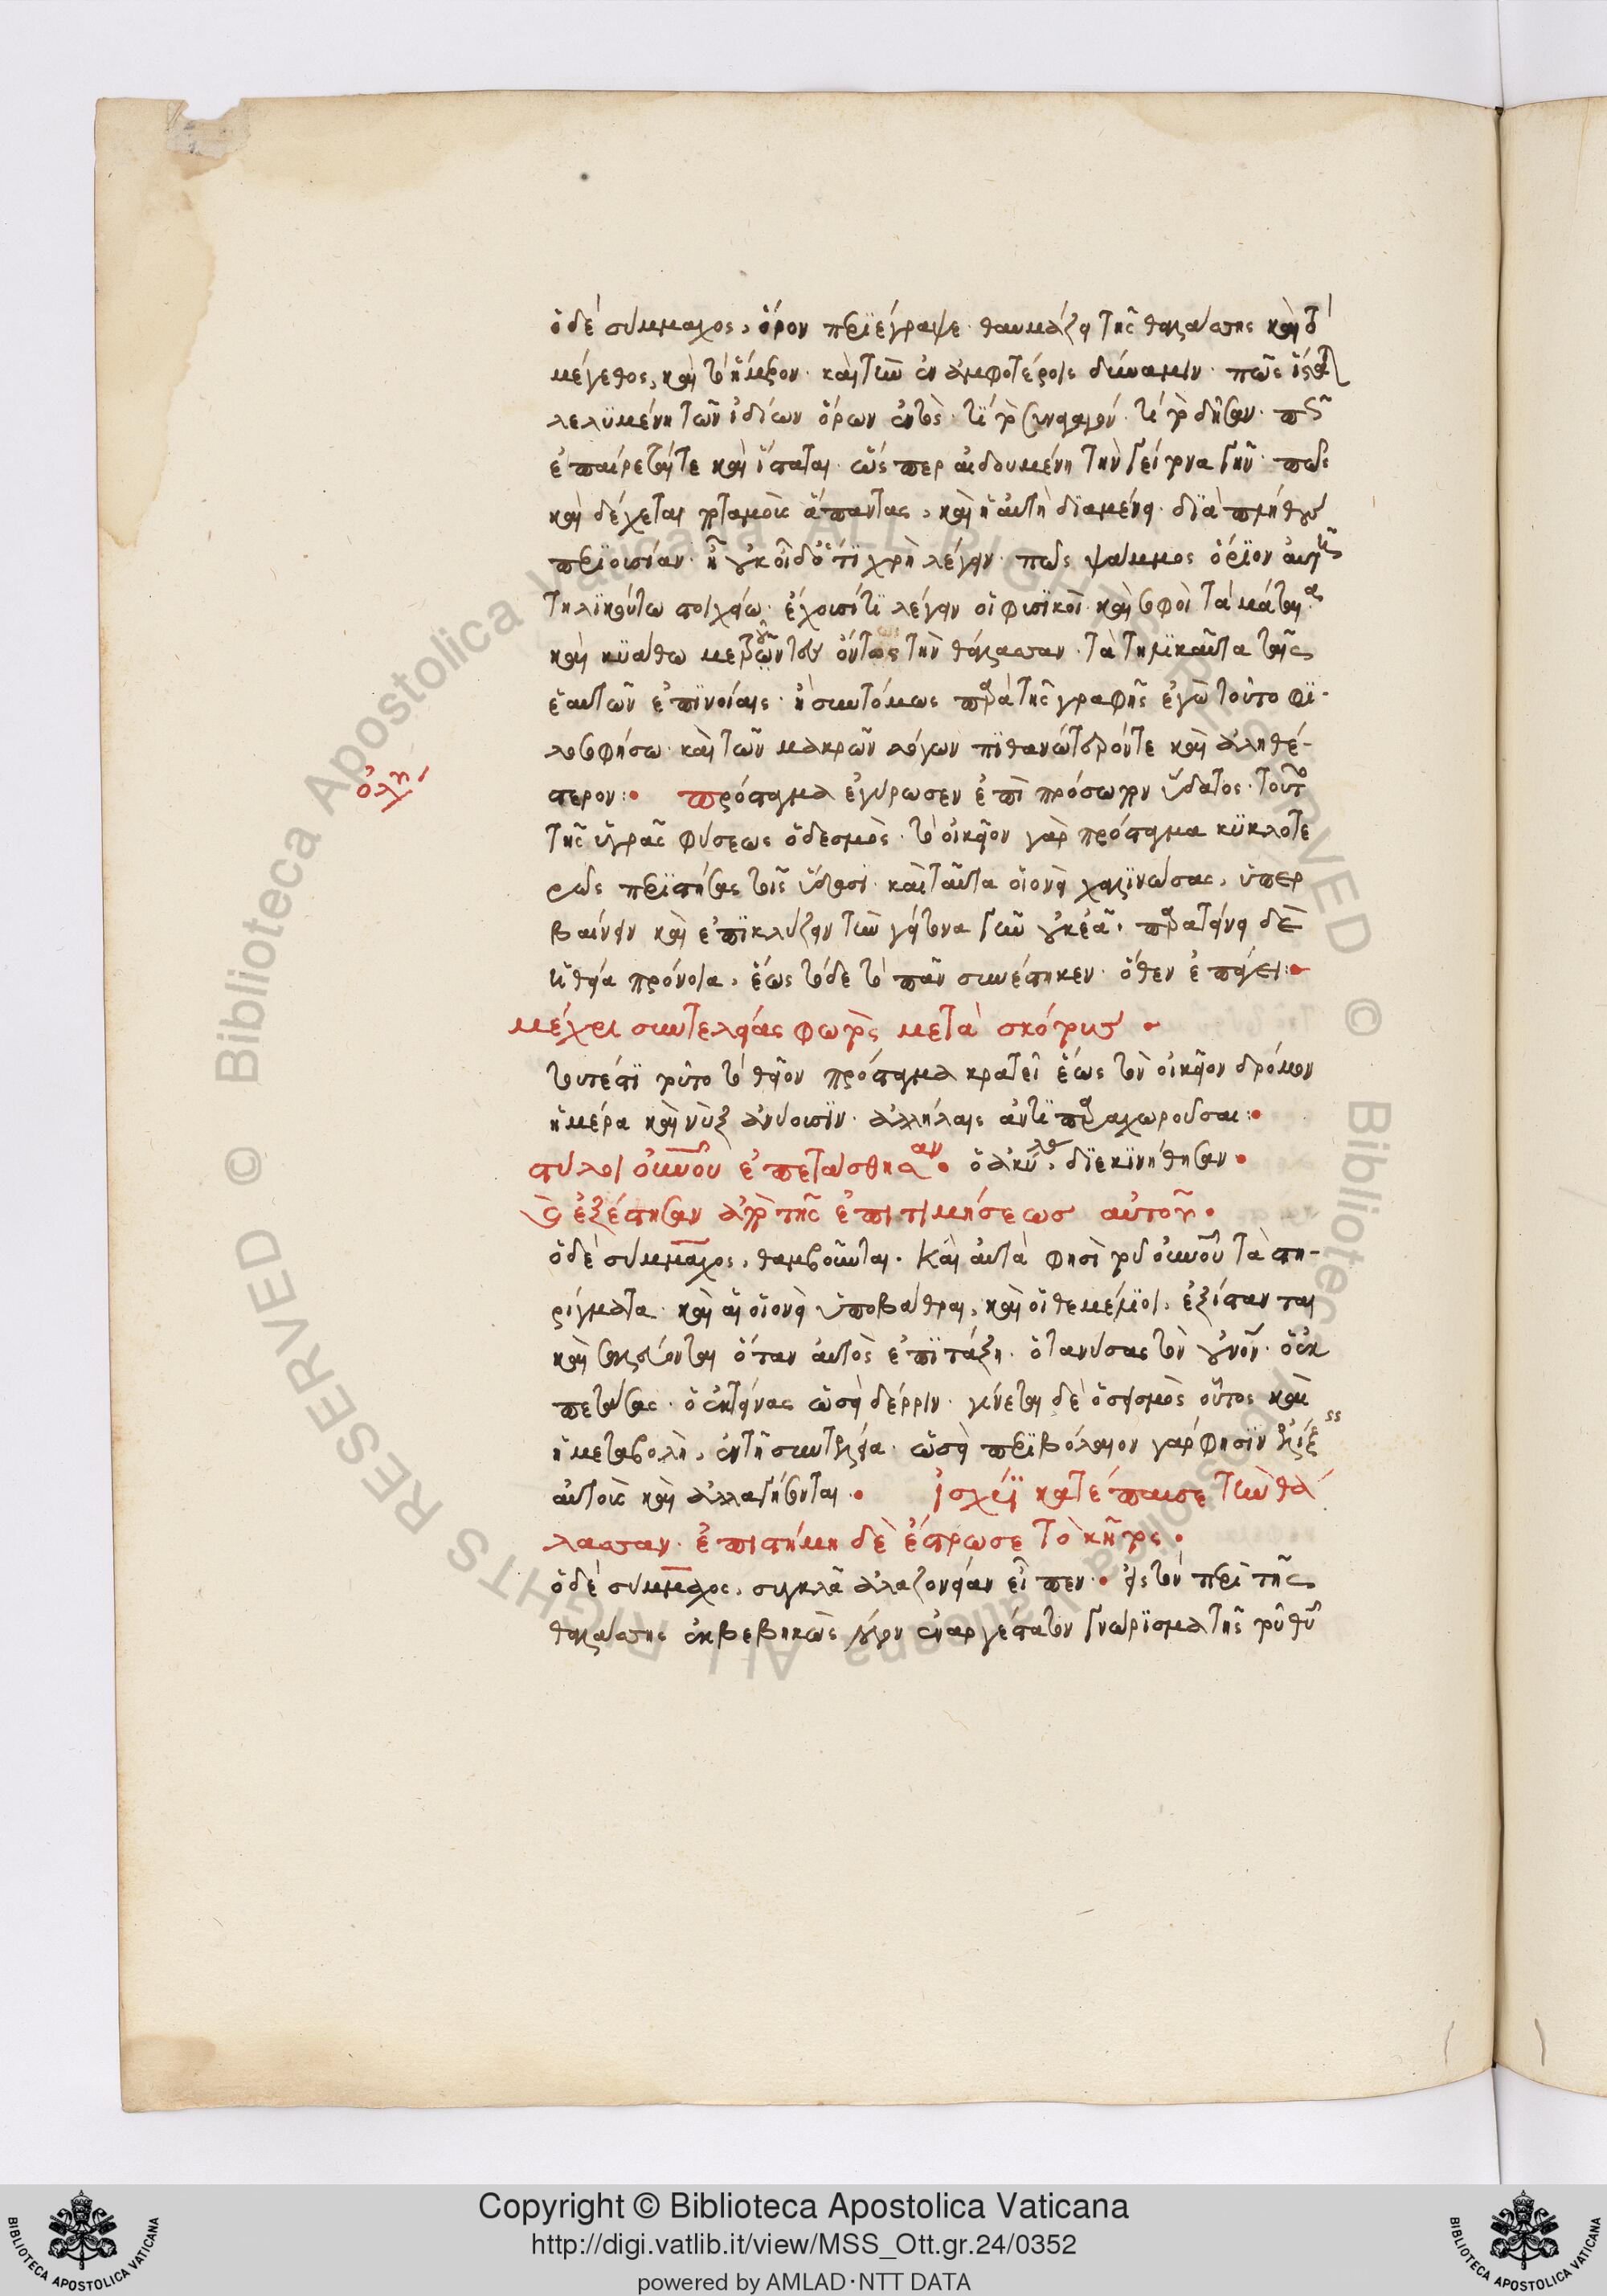 ὁ δὲ σύμμαχος, ὅρον περιέγραψε· θαυμάζω τῆς θαλάσσης καὶ τὸ
μέγεθος, καὶ τὸ ἥμερον· καὶ τὴν ἐν ἀμφοτέροις δύναμιν· πῶς
λελυμένη τῶν ἰδίων ὅρων ἐντὸς· πῶς
ἐπαίρεταί τε καὶ ἵσταται· ὥσπερ αἰδουμένη τὴν γείτονα γῆν· πῶς
καὶ δέχεται ποταμοὺς ἅπαντας, καὶ ἡ αὐτὴ διαμένει· διὰ πλήθους
περιουσίαν· ἢ οὐκ οἶδ' ὅ τι χρὴ λέγειν· πῶς ψάμμος ὅριον αὐτῆ
τηλικούτω στοιχείω· ἔχουσί τι λέγειν οἱ φυσικοὶ καὶ σοφοὶ τὰ μάταια
καὶ κυάθω μετροῦντες ὄντως τὴν θάλασσαν· τὰ τηλικαῦτα ταῖς
ἑαυτῶν ἐπινοίαις· ἢ συντόμως παρὰ τῆς γραφῆς ἐγὼ τοῦτο φι-
λοσοφήσω· καὶ τῶν μακρῶν λόγων πιθανώτερόν τε καὶ ἀληθέ-
στερον:• πρόσταγμα ἐγύρωσεν ἐπὶ πρόσωπον ὕδατος· τοῦτο
τῆς ὑγρᾶς φύσεως ὁ δεσμὸς· τὸ οἰκεῖον γὰρ πρόσταγμα κυκλοτε
ρῶς περιστήσας τοῖς ὕδασι· καὶ ταῦτα οἱονεὶ χαλινώσας, ὑπερ
βαίνειν καὶ ἐπικλύζειν τὴν γείτονα γῆν οὐκ ἐᾶ· παρατείνει δὲ
ἡ θεία πρόνοια, ἕως τόδε τὸ πᾶν συνέστηκεν· ὅθεν ἐπάγει:•
μέχρι συντελείας φωτὸς μετὰ σκότους •
τουτέστι τοῦτο τὸ θεῖον πρόσταγμα κρατεῖ ἕως τὸν οἰκεῖον δρόμον
ἡμέρα καὶ νὺξ ἀνύουσιν· ἀλλήλαις ἀντιπαραχωροῦσαι:•
στύλοι οὐνοῦ ἐπετάσθησαν • ὁ ἀκύλας. διεκινήθησαν •
καὶ ἐξέστησαν ἀπὸ τῆς ἐπιτιμήσεως αὐτοῦ •
ὁ δὲ σύμμαχος, θαμβοῦνται. Καὶ αὐτά φησι τοῦ οὐνοῦ τὰ στη-
ρίγματα καὶ αἱ οἱονεὶ ὑποβάθραι, καὶ οἱ θεμέλιοι, ἐξίστανται
καὶ σαλεύονται ὅταν αὐτὸς ἐπιτάξη· ὁ τανύσας τὸν οὐνόν· ὁ ἐκ
πετάσας· ὁ ἐκτείνας ὡσεὶ δέρριν· γίνεται δὲ ὁ σεισμὸς οὗτος καὶ
ἡ μεταβολὴ, ἐν τῆ συντελεία· ὡσεὶ περιβόλαιον γάρ φησιν ἑλίξεις
αὐτοὺς καὶ ἀλλαγήσονται • ἰσχύϊ κατέπαυσε τὴν θά
λασσαν· ἐπιστήμη δὲ ἔστρωσε τὸ κῆτος •
ὁ δὲ σύμμαχος, συγκλᾶ ἀλαζονείαν εἶπεν • εἰς τὸν περὶ τῆς
θαλάσσης ἐκβεβηκὼς λόγον ἐναργέστατον γνώρισμα τῆς τοῦ θῦ
Copyright © Biblioteca Apostolica Vaticana
http://digi.vatlib.it/view/MSS_Ott.gr.24/0352
powered by AMLAD·NTT DATA
BIBLIOTECA APOSTOLICA VATICANA
BIBLIOTECA APOSTOLICA VATICANA
© Biblioteca Apostolica Vaticana ALL RIGHTS RESERVED
© Biblioteca Apostolica Vaticana ALL RIGHTS RESERVED